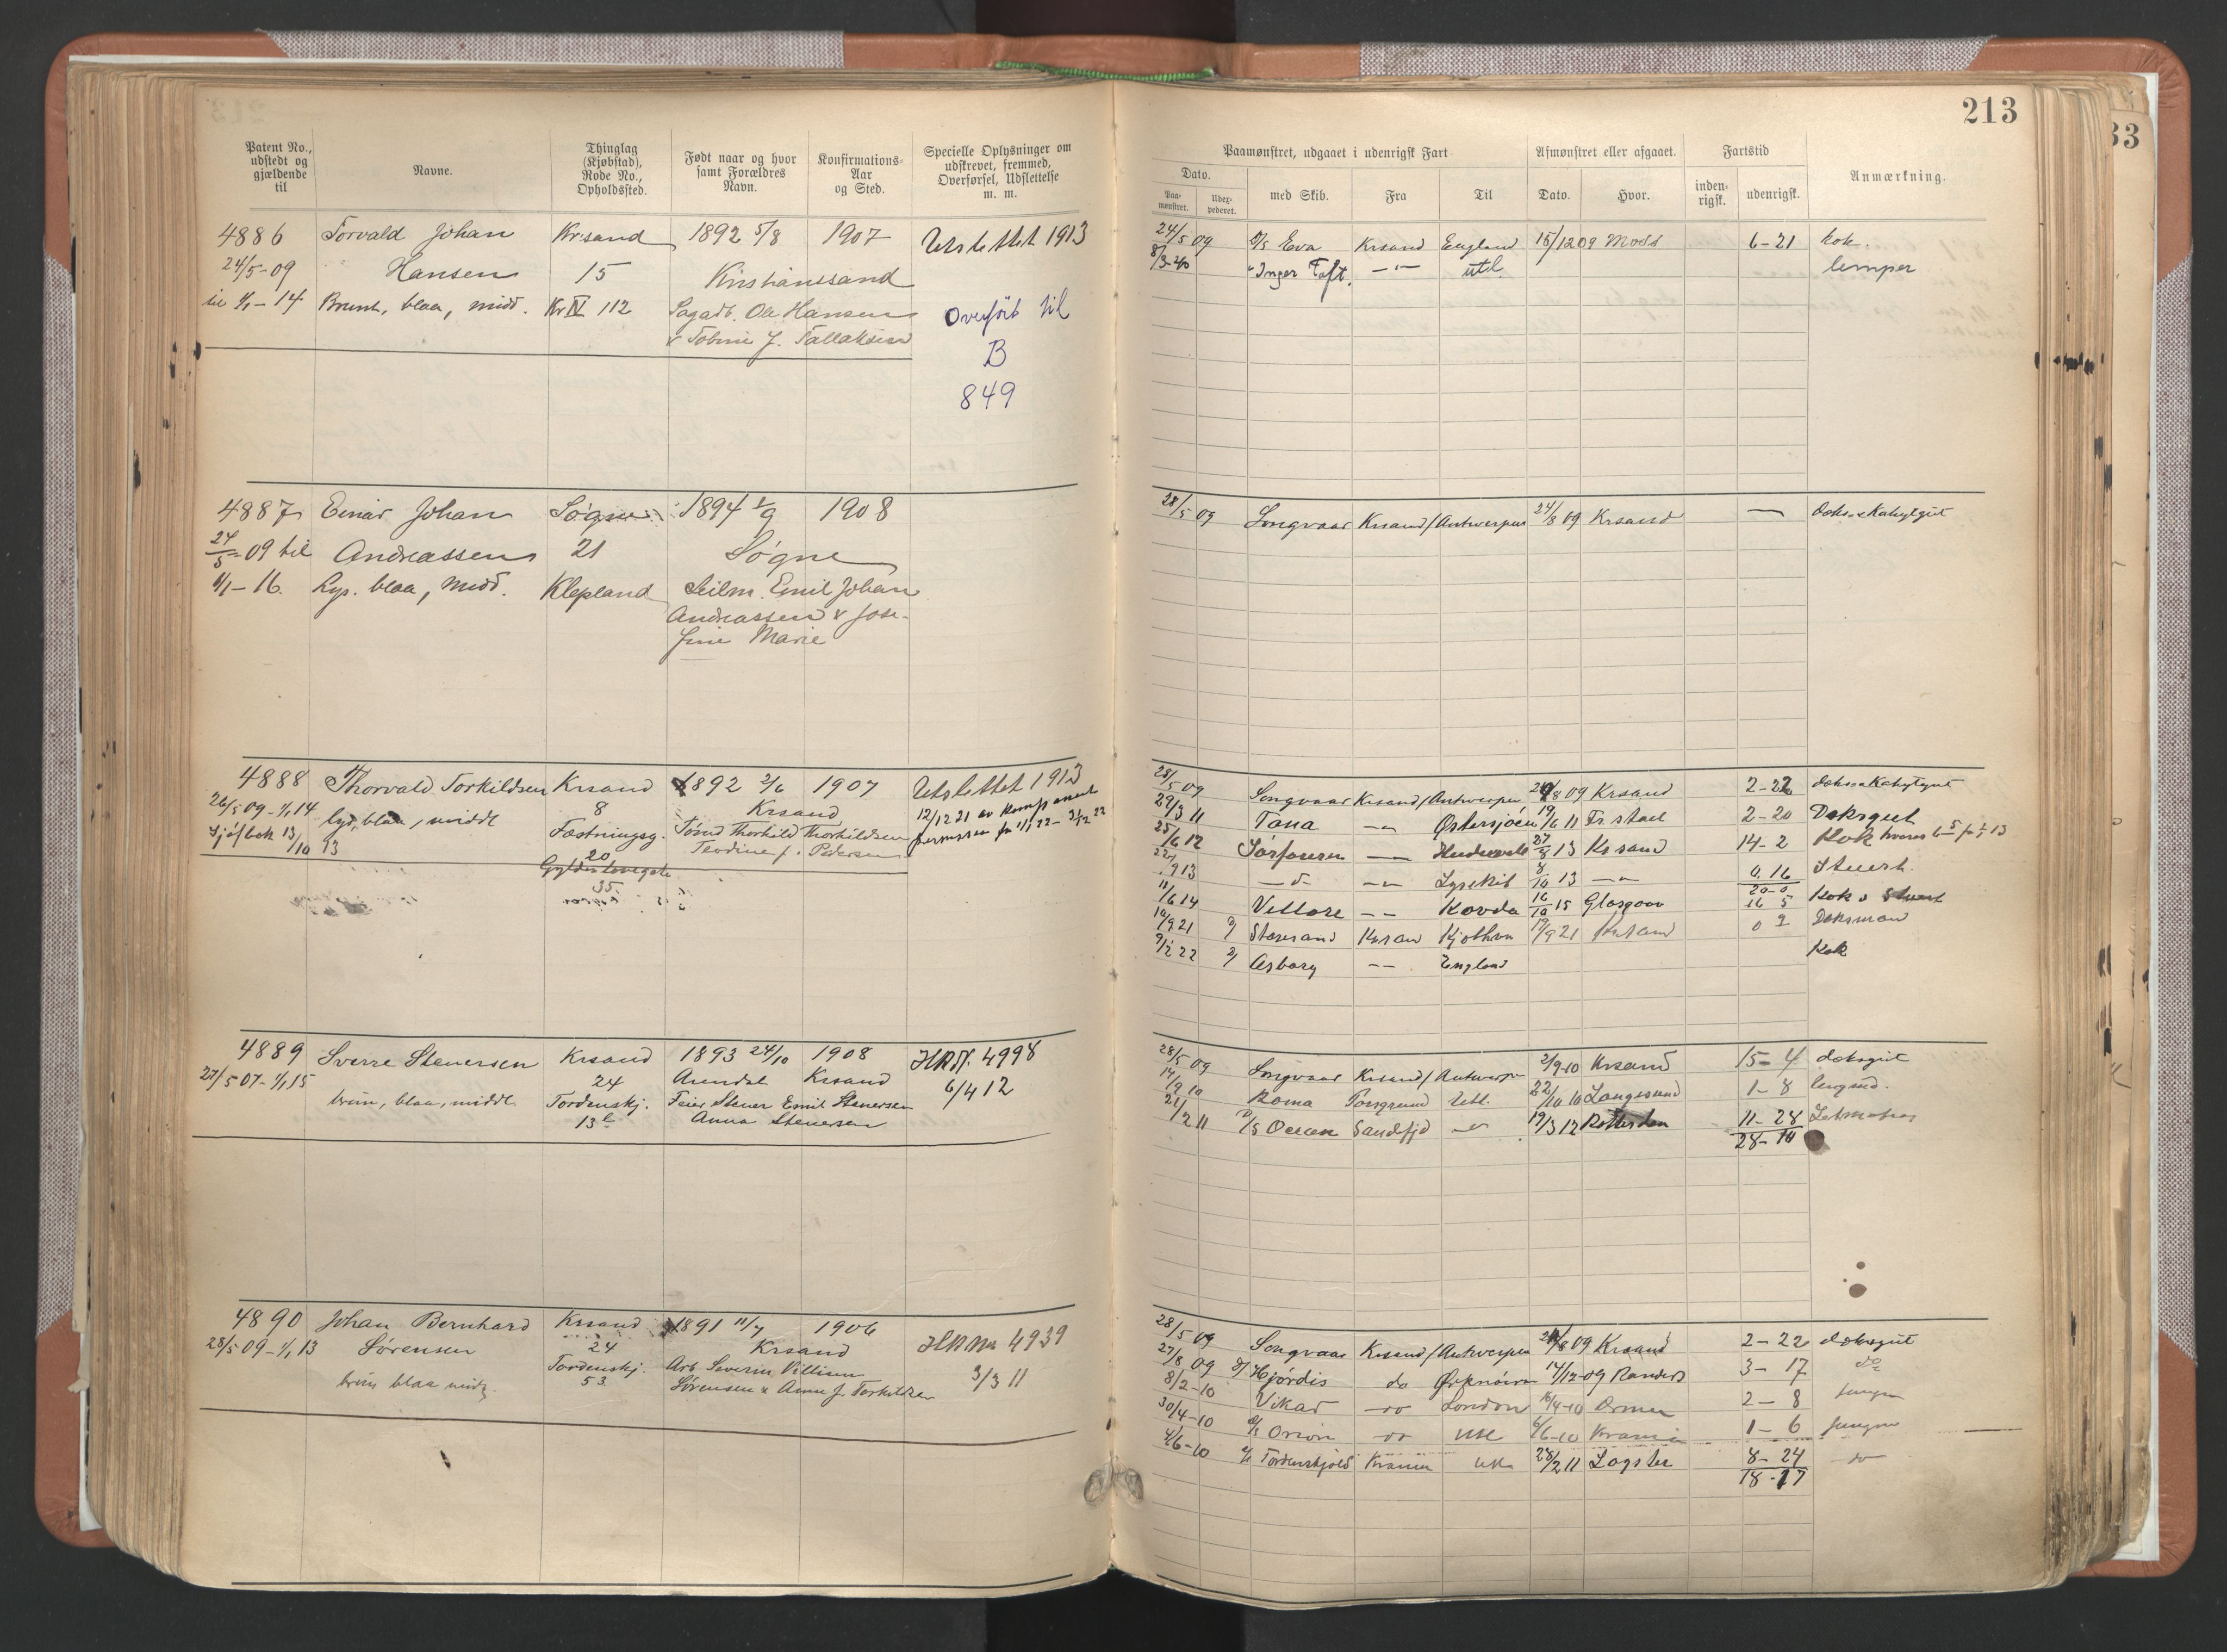 213
33
Patent No., udstedt og gjældende til
Navne.
Thinglag (Kjøbstad), Rode No., Opholdssted.
Født naar og hvor samt Forældres Navn.
Konfirmations-Aar og Sted.
Specielle Oplysninger om udskrevet, fremmed, Overførsel, Udslettelse m. m.
Paamønstret, udgaaet i udenrigsk Fart
Afmønstret eller afgaaet.
Fartstid
Anmærkning.
Dato.
Paa-mønstret.
Udex-pederet.
med Skib.
Fra
Til
Dato.
Hvor.
inden-rigsk.
udenrigsk.
4886 Torvald Johan Krsand 1892 5/8 1907 Utslettet 1913
24/5-09 Hansen 15 Kristianssand
til 1/1-14 Brunt, blaa, midd. Kr IV 112 Sagarb. Ole Hansen Overført til
& Tobine J. Tallaksen B
849
24/5 09 D/S Eva Krsand England 15/12 09 Moss 6-21 kok.
8/3-40 " Inger Toft. -"- utl. lemper
4887 Einar Johan Søgne 1894 1/9 1908
24/5-09 til Andreassen 21 Søgne
1/1-16. Lys. blaa, midd. Klepland Seilm. Emil Johan
Andreassen & Jose-
fine Marie
28/5 09 Songvaar Krsand / Antwerpen 24/8 09 Krsand — Doks & Kahytgut
4888 Thorvald Torkildsen Krsand 1892 2/6 1907 Utslettet 1913
26/5 09-1/1 14 lys, blaa, middl 8 Krsand 12/12 21
Sjøfbok 13/10 13 Fæstningsg. Tømd Thorkild Thorkildsen
20 Teodine f. Pedersen
Gyldenløvegate
35
28/5 09 Songvaar Krsand / Antwerpen 24/8 09 Krsand 2-22 doks & Kahytgut
29/3 11 Tana -"- Østersjøen 19/6 11 Fr.stad 2-20 Doksgut
25/6 12 -"- 27/8 13 Krsand 14-2 Kok
913 -d- -"- Lysekil 8/10 13 -"- 0.16 Stuert.
20-0
11/6 14 Vellore -"- Kovda 16/10 15 Glasgow 16 5 Kok o Stuert
10/9 21 D/ Storesand Krsan Kjøbhvn 19/9 21 Krsand 0 9 Doksman
9/12 22 D/ Asborg -"- England Kok
4889 Sverre Stenersen Krsand 1893 24/10 1908 HRN. 4998
27/5 07-1/1 15 24 Arendal Krsand 6/4 12
brun, blaa, middl. Tordenskj. Feier Stener Emil Stenersen
13 b Anna Stenersen
28/5 09 Songvaar Krsand / Antwerpen 2/9-10 Krsand 15-4 doksgut
14/9 10 Roma Porsgrund Utl. 22/10 10 Langesund 1-8 lengmd.
21/2 11 D/S Ocean Sandefjd -"- 19/3 12 Rotterdam 11-28 Letmatros
28-10
4890 Johan Bernhard Krsand 1891 11/7 1906 HRNr 4939
28/5 09-1/1 13 Sørensen 24 Krsand 3/3 11
brun blaa midd. Tordenskj. Arb. Severin Villisen
53 Sørensen & Anne f. Torkildsen
28/5 09 Songvaar Krsand / Antwerpen 24/8 09 Krsand 2-22 doksgut
27/8 09 D/ Hjørdis do Ørknøerne 14/12-09 Randers 3-17 do
8/2-10 Vikar -"- London 16/4-10 2-8 Jungm
30/4-10 D/S Orion -"- Utl 6/6-10 Krania 1-6 Jungm
4/6-10 D/S Tordenskjold Krania Utl 28/2 11 Løgstør 8-24 do
18-17